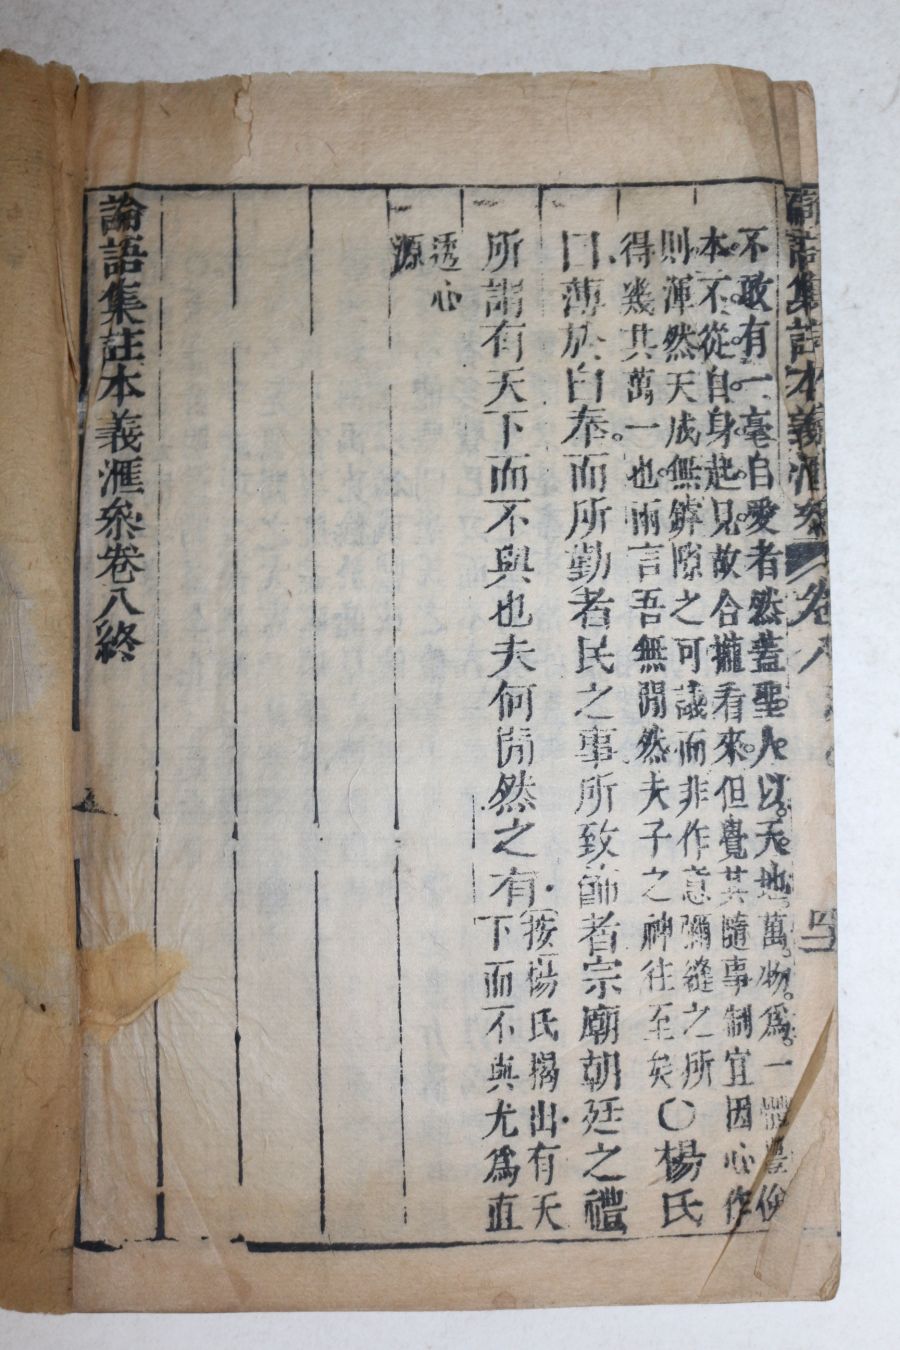 論語集註本義滙參 卷八
不敢有一毫自愛者然蓋聖人以天地萬物爲一體豐儉
本不從自身起見故合攏看來但覺其隨事制宜因心作
則渾然天成無罅隙之可議而非作意彌縫之所
得幾其萬一也兩言吾無間然夫子之神往至矣〇楊氏
曰薄於自奉而所勤者民之事所致飾者宗廟朝廷之禮
所謂有天下而不與也夫何間然之有
按楊氏揭出有天
下而不與尤爲直
透心
源
論語集註本義滙參卷八終